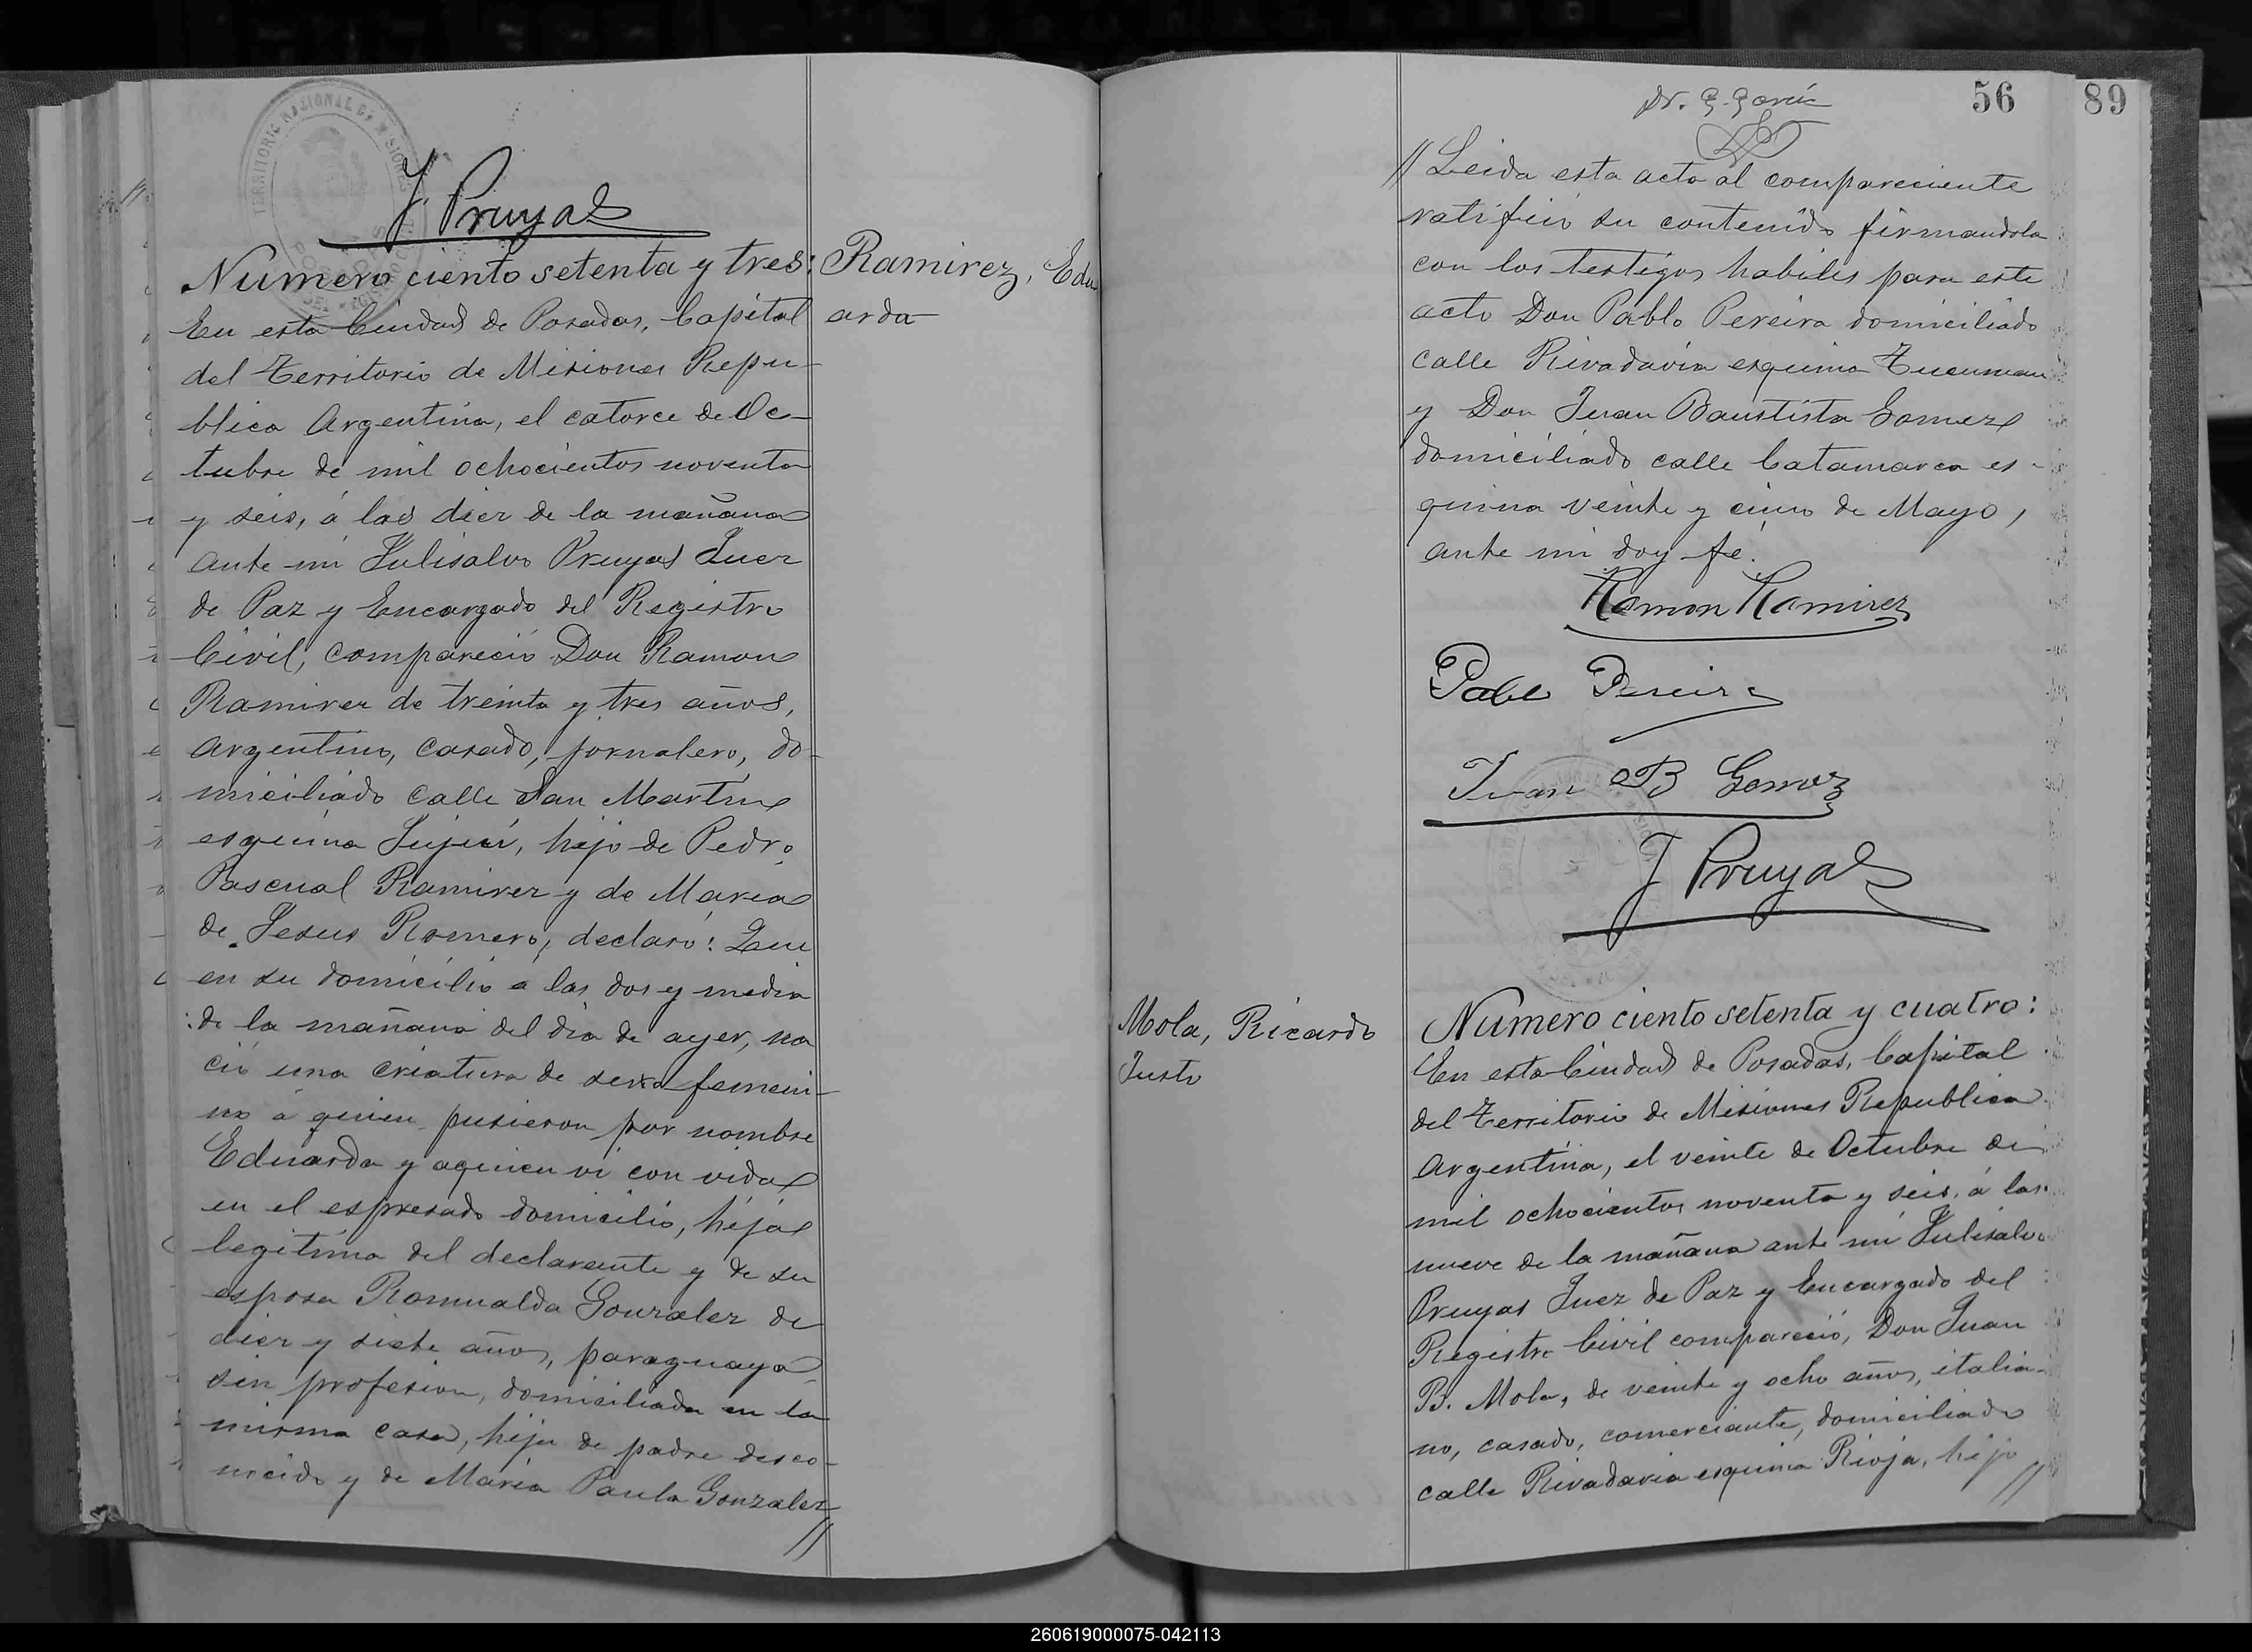 J. Pruyas
Numero ciento setenta y tres:
Ramirez, Edu
arda
En esta Ciudad de Posadas, Capital
del Territorio de Misiones Repu-
blica Argentina, el catorce de Oc-
tubre de mil ochocientos noventa
y seis, á las diez de la mañana
ante mi Fulisalvo Pruyas Juez
de Paz y Encargado del Registro
Civil, compareció Don Ramon
Ramirez de treinta y tres años,
argentino, casado, jornalero, do-
miciliado calle San Martin
esquina Jujui, hijo de Pedro
Pascual Ramirez y de Maria
de Jesus Romero, declaró: Que
en su domicilio a las dos y media
de la mañana del dia de ayer, na
ció una criatura de sexo femeni-
no á quien pusieron por nombre
Eduarda y aquien vi con vida
en el espresado domicilio, hija
legitima del declarante y de su
esposa Romualda Gonzalez de
diez y siete años, paraguaya
sin profesion, domiciliada en la
misma casa, hija de padre desco-
nocido y de Maria Paula Gonzalez
//
56
89
// Leida esta acta al compareciente
ratificó su contenido firmandola
con los testigos habiles para este
acto Don Pablo Pereira domiciliado
calle Rivadavia esquina Tucuman
y Don Juan Bautista Gomez
domiciliado calle Catamarca es-
quina veinte y cinco de Mayo,
ante mi doy fe.
Ramon Ramirez
Pablo Pereira
Juan B Gomez
J Pruyas
Mola, Ricardo
Justo
Numero ciento setenta y cuatro:
En esta Ciudad de Posadas, Capital
del Territorio de Misiones Republica
Argentina, el veinte de Octubre de
mil ochocientos noventa y seis, á las
nueve de la mañana ante mi Fulisalvo
Pruyas Juez de Paz y Encargado del
Registro Civil compareció, Don Juan
B. Mola, de veinte y ocho años, italia-
no, casado, comerciante, domiciliado
calle Rivadavia esquina Rioja, hijo
//
260619000075-042113